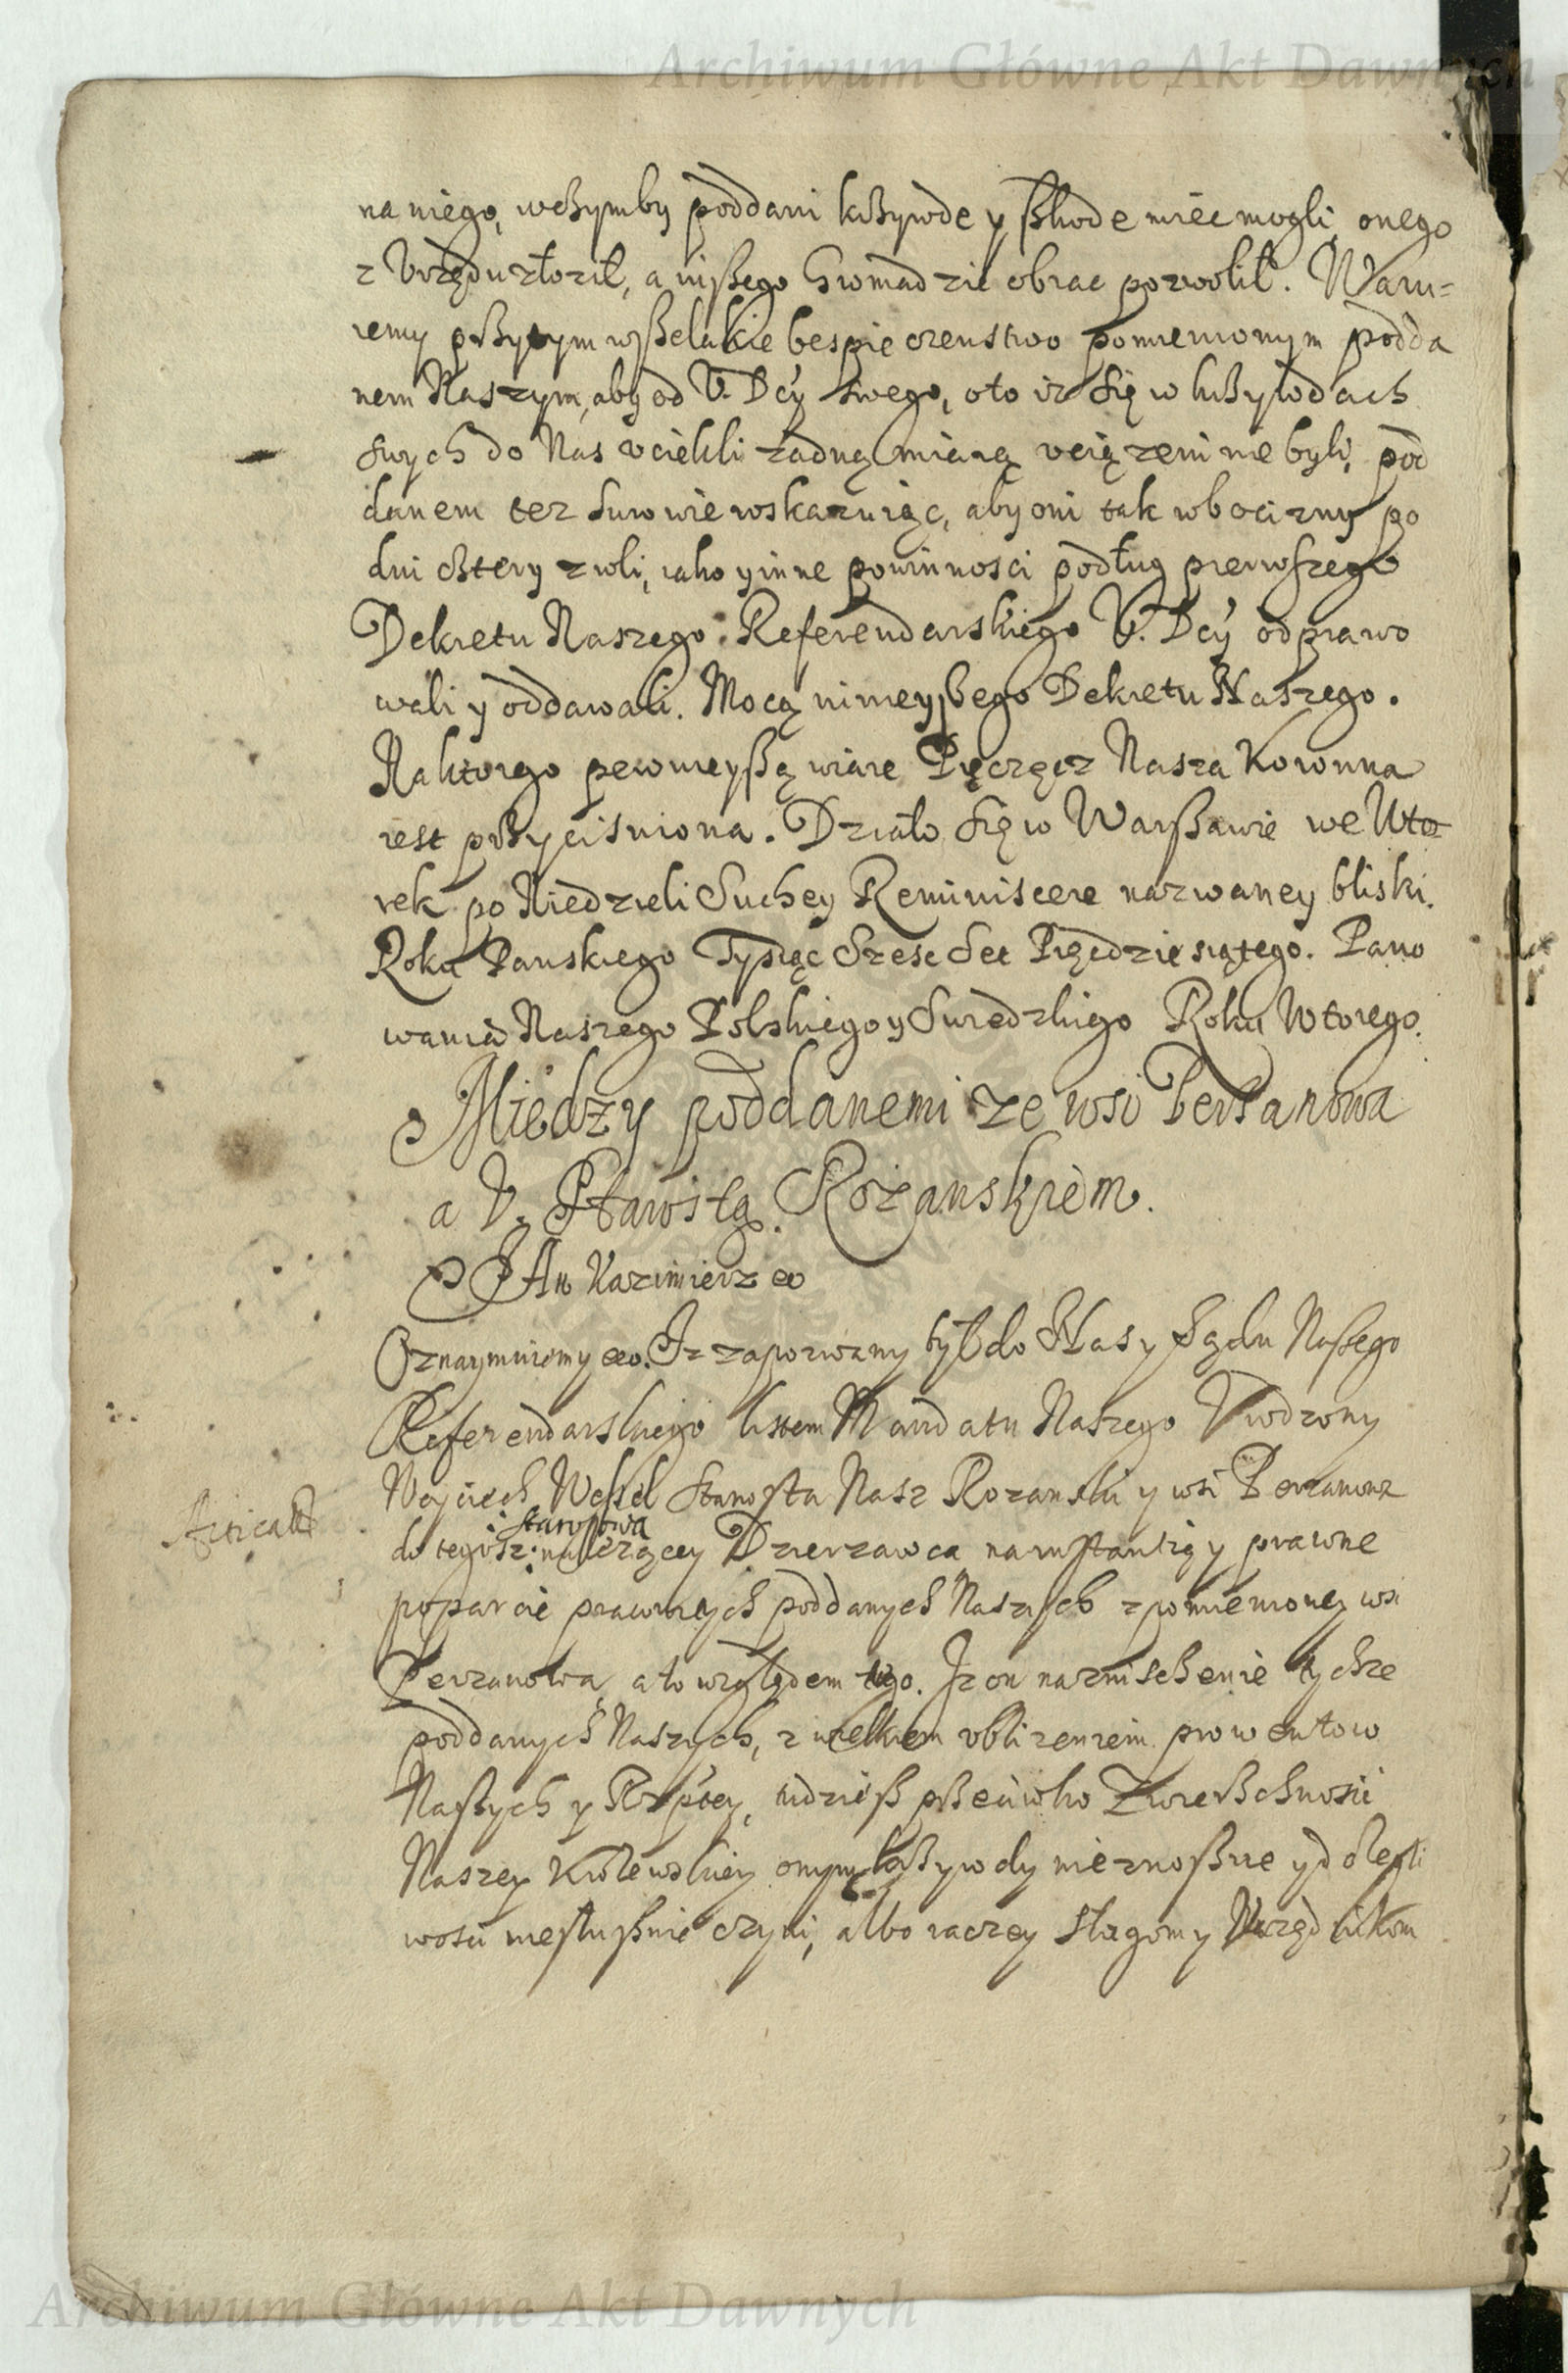 Archiwum Główne Akt Dawnych
na niego, wczymby poddani krzywdę y szkodę miec mogli, onego
z Vrzędu złozil, a inszego Gromadzie obrac pozwolił. Waru-
iemy przytym wszelakie bespieczenstwo pomienionym podda
nem Naszym, aby od V. Dcy swego, oto iz się w krzywdach
swych do Nas vciekli zadną miarą vciązeni nie byli, pod
danem tez surowie wskazuiąc, aby oni tak robocizny po
dni cztery z woli, iako y inne powinnosci podług pierwszego
Dekretu Naszego Referendarskiego V. Dcy odprawo
wali y oddawali. Mocą ninieyszego Dekretu Naszego.
Na ktorego pewnieyszą wiarę Pięczęcz Nasza Koronna
iest przycisniona. Działo się w Warszawie we Wto
rek po Niedzieli Suchey Reminiscere nazwaney bliski.
Roku Panskiego Tysiąc Szesc Set Pięcdziesiątego. Pano
wania Naszego Polskiego y Swedzkiego Roku Wtorego.
Między poddanemi ze wsi Perzanowa
a V. Starostą Rozanskiem.
JAn Kazimierz
Oznaymuiemy Iz zapozwany był do Nas y Sądu Naszego
Referendarskiego listem Mandatu Naszego Vrodzony
Woyciech Wessel Starosta Nasz Rozanski y wsi Perzanowa
starostwa
do tegosz nalezącey Dzierzawca na instantią y prawne
poparcie pracowitych poddanych Naszych z pomienioney wsi
Perzanowa, a to względem tego. Iz on na zniszczenie tychze
poddanych Naszych, z wielkiem vblizeniem prowentow
Naszych y Rzptey, tudziesz przeciwko Zwierzchnosci
Naszey Krolewskiey onym krzywdy nieznosne y dolegli
wosci niesłusznie czyni, albo raczey sługom y Vrzędnikom
Archiwum Główne Akt Dawnych